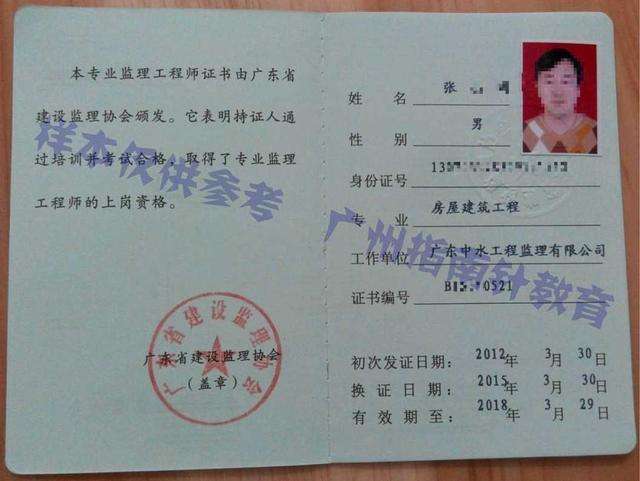 本专业监理工程师证书由广东省
建设监理协会颁发。它表明持证人通
过培训并考试合格，取得了专业监理
工程师的上岗资格。
广东省建设监理协会
（盖章）
广东省建设监理协会
姓 名 张
性 别 男
身份证号 13
专 业 房屋建筑工程
工作单位 广东中水工程监理有限公司
证书编号 B 0521
初次发证日期： 2012年 3月 30日
换证日期： 2015年 3月 30日
有效期至： 2018年 3月 29日
样本仅供参考 广州指南针教育